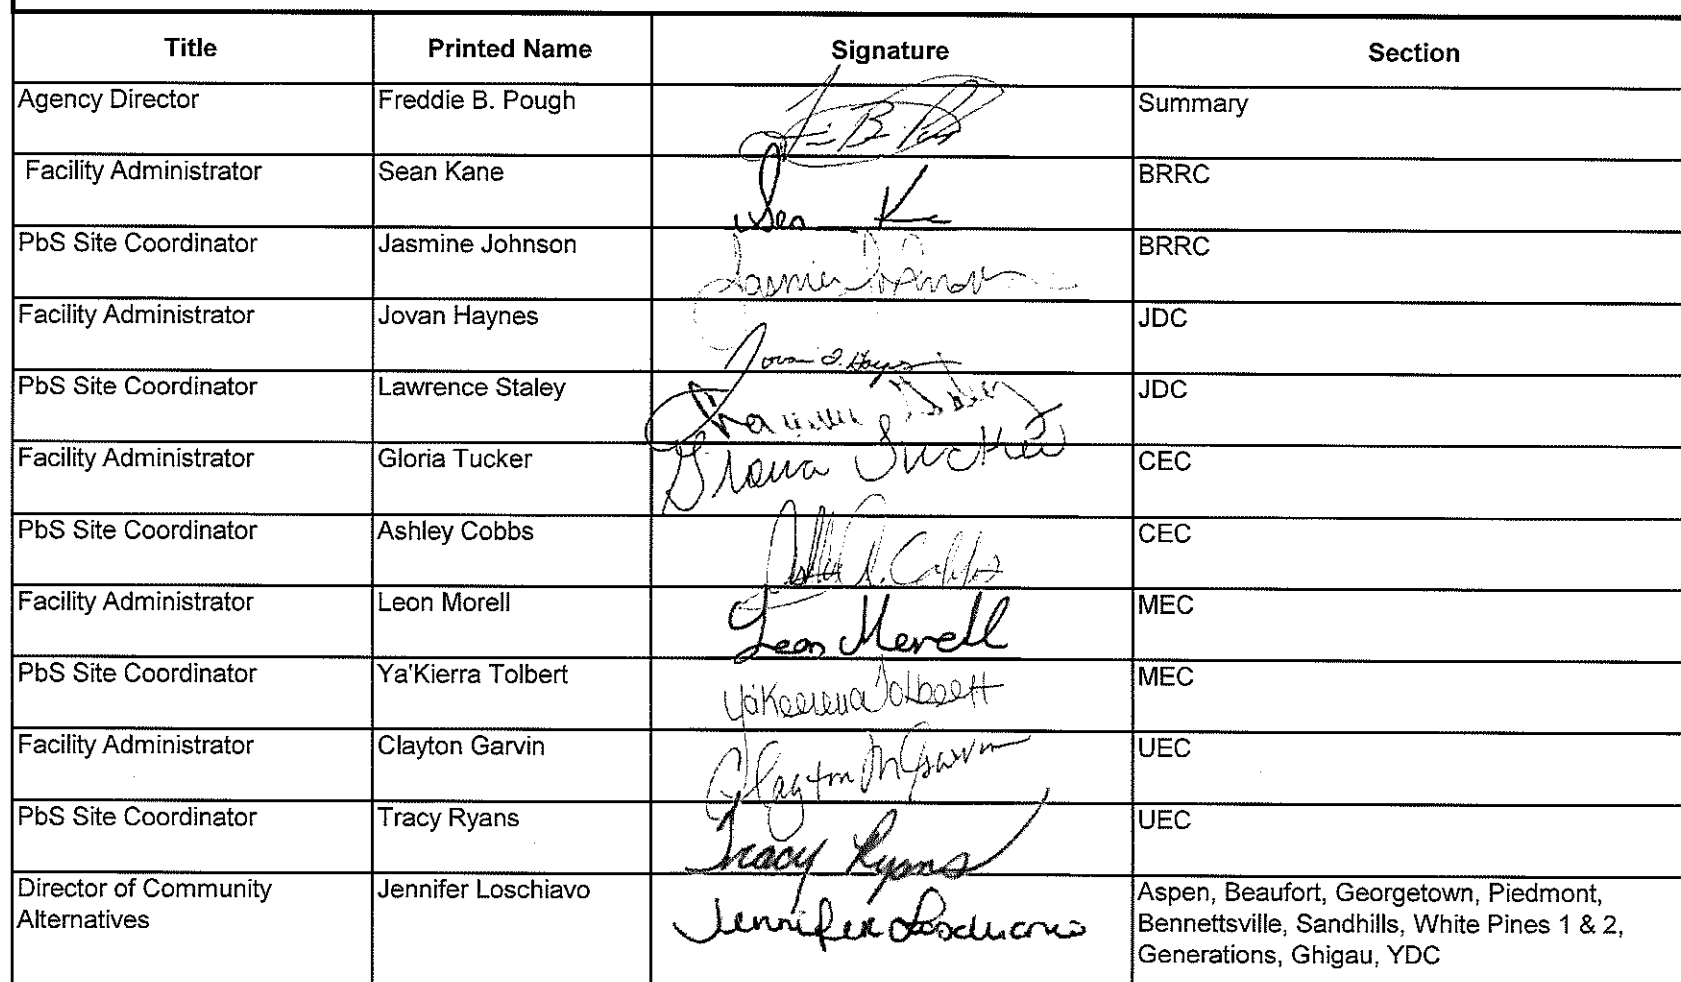 Title Printed Name Signature Section
Agency Director Freddie B. Pough Summary
Facility Administrator Sean Kane Sean K BRRC
PbS Site Coordinator Jasmine Johnson BRRC
Facility Administrator Jovan Haynes Jovan Haynes JDC
PbS Site Coordinator Lawrence Staley Lawrence Staley JDC
Facility Administrator Gloria Tucker Gloria Tucker CEC
PbS Site Coordinator Ashley Cobbs CEC
Facility Administrator Leon Morell Leon Morell MEC
PbS Site Coordinator Ya'Kierra Tolbert Ya'Kierra Tolbert MEC
Facility Administrator Clayton Garvin Clayton M Garvin UEC
PbS Site Coordinator Tracy Ryans Tracy Ryans UEC
Director of Community Jennifer Loschiavo Jennifer Loschiavo Aspen, Beaufort, Georgetown, Piedmont,
Alternatives Bennettsville, Sandhills, White Pines 1 & 2,
Generations, Ghigau, YDC